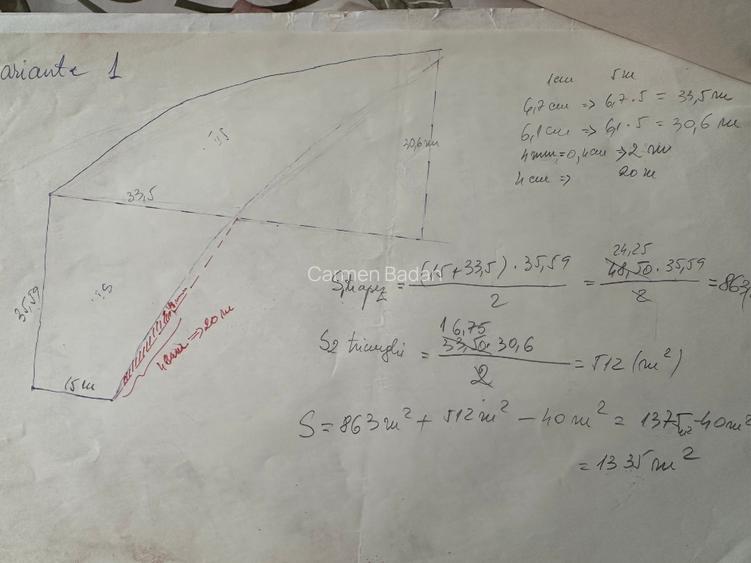 ariante 1
1cm 5m
6,7cm => 6,7·5 = 33,5 m
6,1cm => 6,1·5 = 30,6 m
4mm = 0,4cm => 2 m
4cm => 20 m
30,6m
33,5
35,59
15m
4cm => 20 m
Carmen Badan
S1trapez = (15+33,5)·35,59 / 2 = 24,25 48,50·35,59 / 2 = 863,
S2 triunghi = 16,75 33,50·30,6 / 2 = 512 (m²)
S = 863m² + 512m² - 40m² = 1375m² - 40m²
= 1335m²